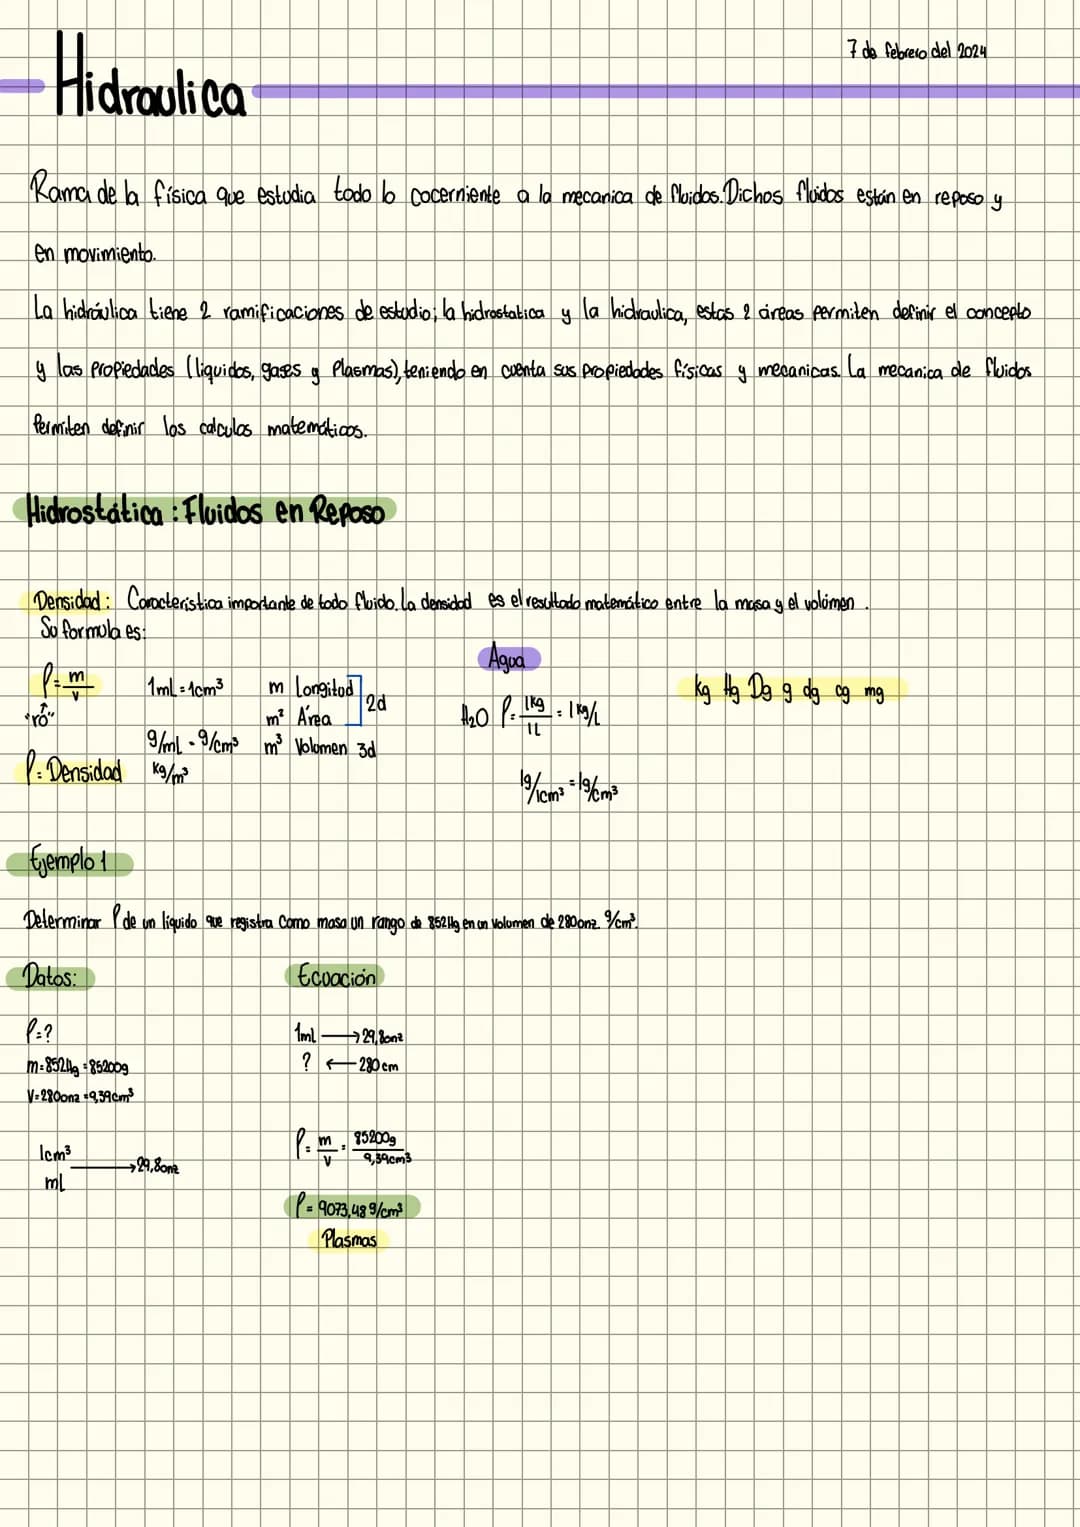 7 de febrero del 2024
Hidraulica
Rama de la física que estudia todo lo cocerniente a la mecanica de fluidos. Dichos fluidos están en reposo y
en movimiento.
La hidráulica tiene 2 ramificaciones de estudio; la hidrostatica y la hidraulica, estas 2 áreas permiten definir el concepto
y las propiedades (liquidos, gases y Plasmas), teniendo en cuenta sus propiedades físicas y mecanicas. La mecanica de fluidos
Permiten definir los calculos matemáticos.
Hidrostática : Fluidos en Reposo
Densidad : Caracteristica importante de todo fluido. La densidad es el resultado matemático entre la masa y el volúmen .
Su formula es:
Agua
ρ = m/v
1mL = 1cm³
m Longitud
m² Área
2d
H₂O ρ = 1kg/1L = 1 kg/L
kg Hg Dg g dg cg mg
"ró"
g/mL - g/cm³
m³ Volumen 3d
ρ = Densidad
kg/m³
1g/1cm³ = 1g/cm³
Ejemplo 1
Determinar ρ de un líquido que registra como masa un rango de 852Hg en un volumen de 280onz. g/cm³.
Datos:
Ecuación
ρ = ?
m = 852Hg = 85200g
V = 280onz = 9,39cm³
1ml → 29,8onz
? ← 280 cm
1cm³
ml
→ 29,8onz
ρ = m/v = 85200g/9,39cm³
ρ = 9073,48 g/cm³
Plasmas